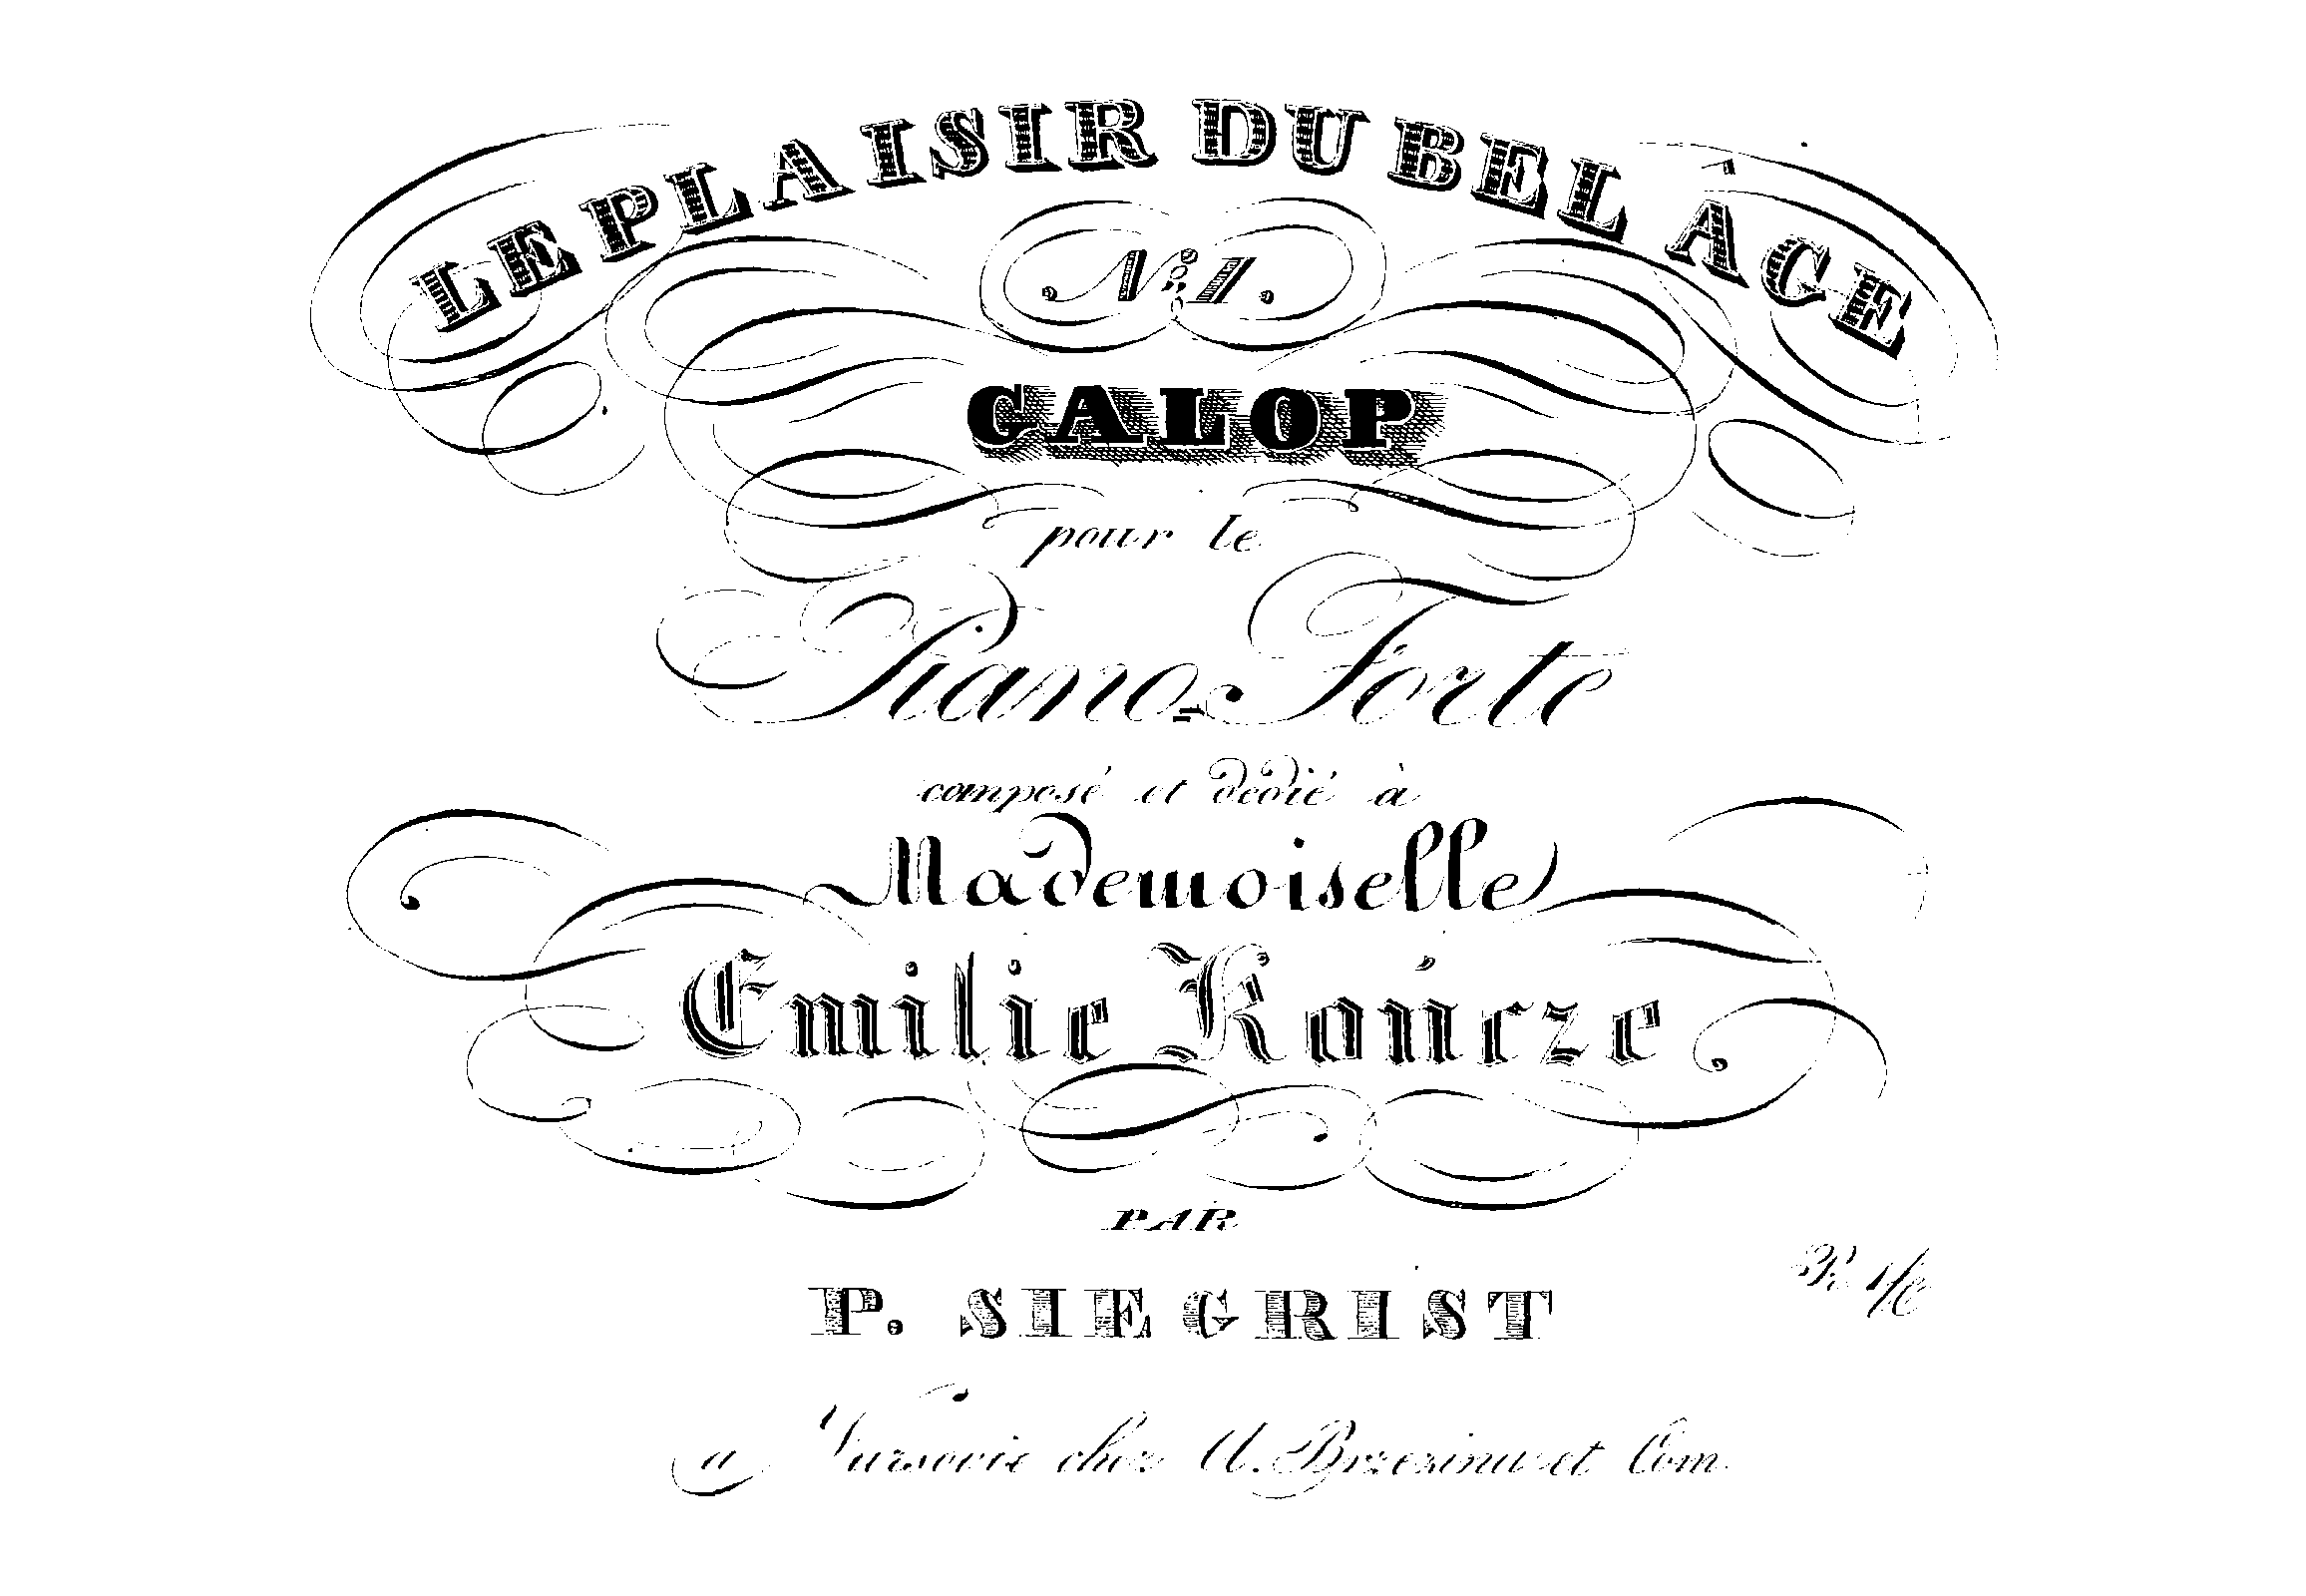 LE PLAISIR DU BEL ÀGE
No. 1.
GALOP
pour le
Piano=Forte
composé et dédié à
Mademoiselle
Emilie Kończe
PAR
P. SIEGRIST
a Varsovie chez A. Brzezina et Com.